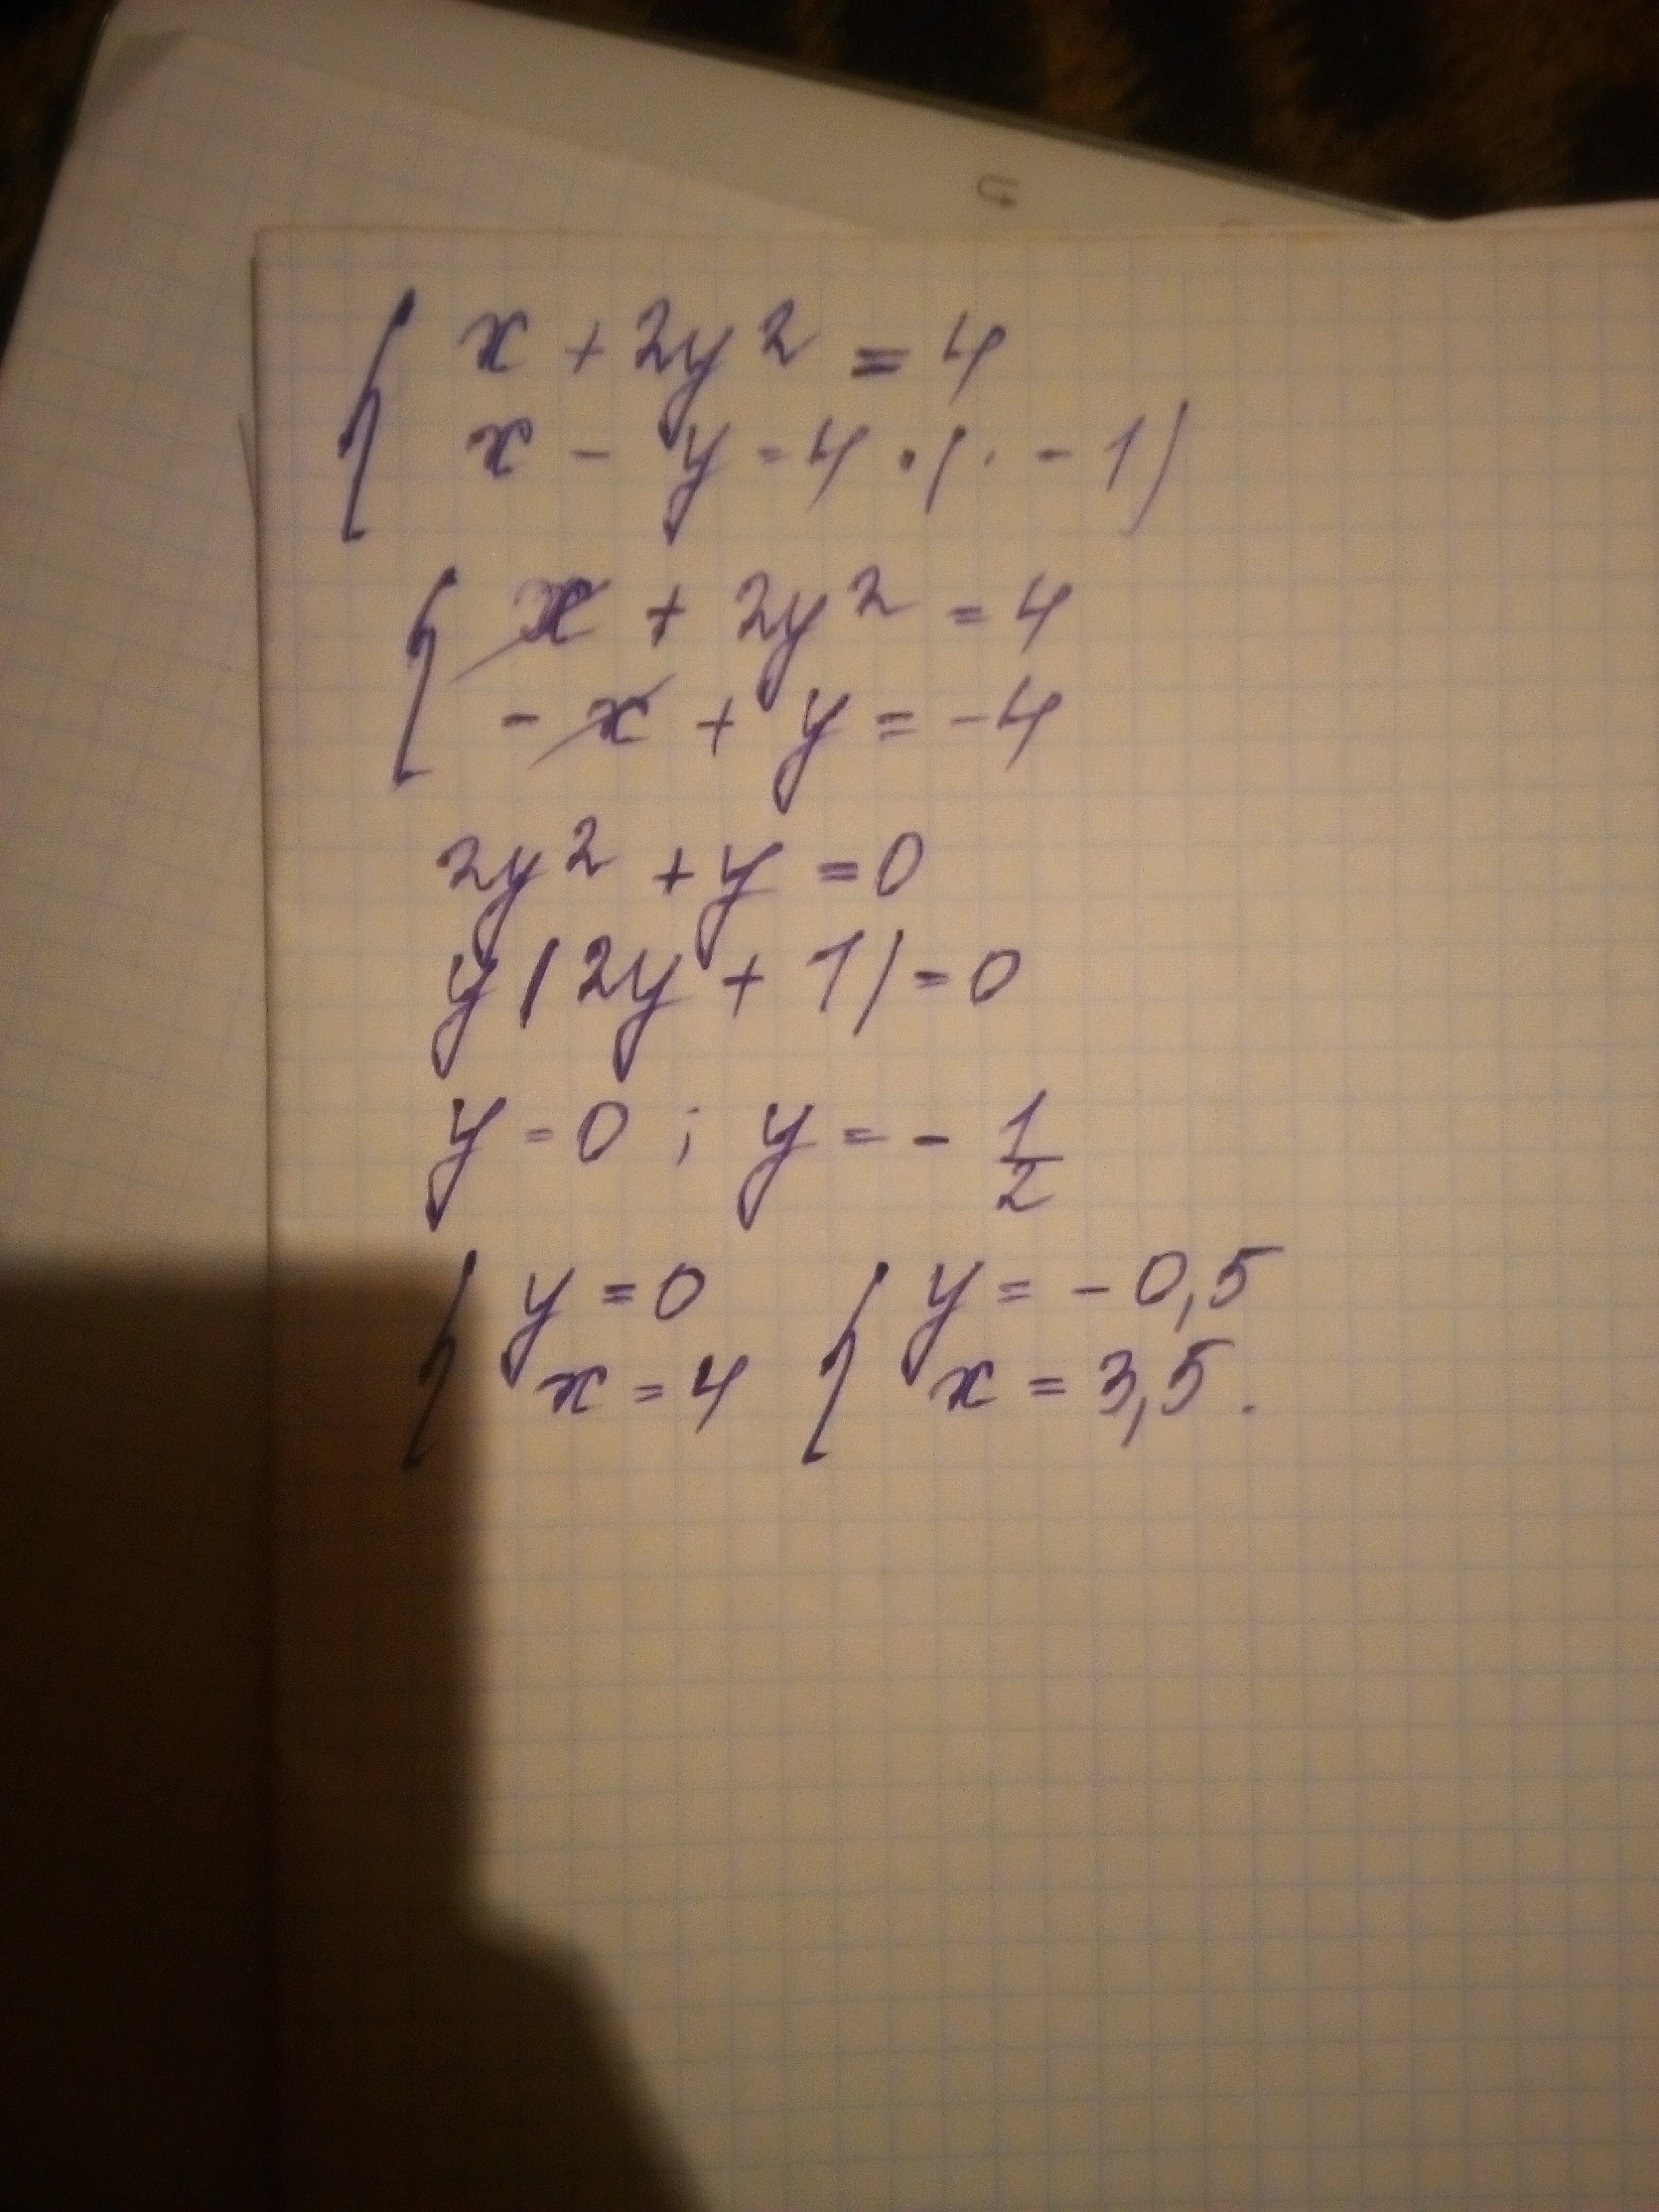 { x + 2y² = 4
x - y = 4 · ( · - 1)
{ x + 2y² = 4
- x + y = -4
2y² + y = 0
y(2y + 1) = 0
y = 0 ; y = - 1/2
{ y = 0 { y = - 0,5
x = 4 x = 3,5.